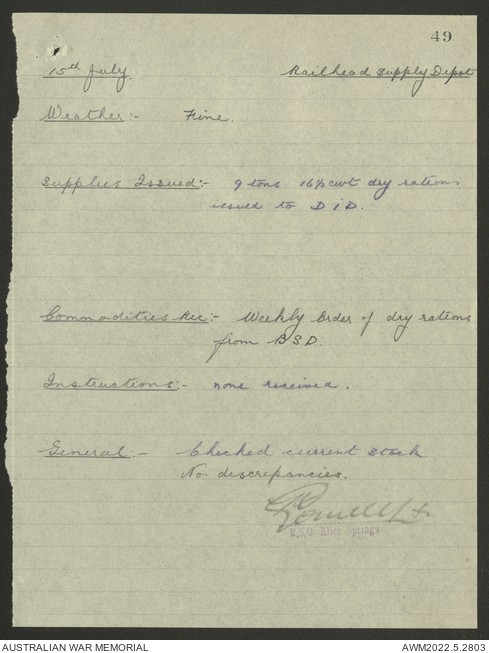 49
15th July. Railhead Supply Depot
Weather:- Fine.
Supplies Issued:- 9 tons 16½cwt dry rations
issued to D i D.
Commodities Rec:- Weekly Order of dry rations
from B S D.
Instructions:- none received.
General:- Checked current stock
No discrepancies.
R.S.O. Alice Springs
AUSTRALIAN WAR MEMORIAL AWM2022.5.2803